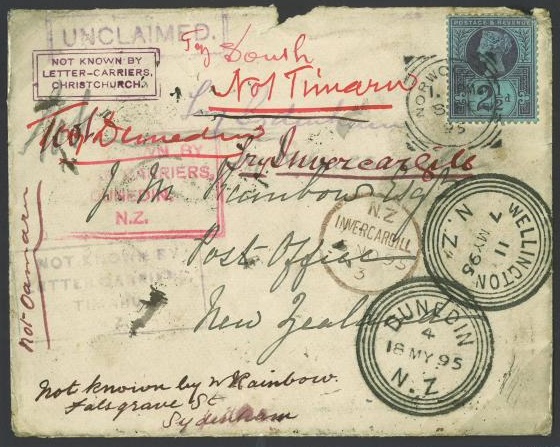 UNCLAIMED.
NOT KNOWN BY
LETTER-CARRIERS,
CHRISTCHURCH.
Try South
Not Timaru
POSTAGE & REVENUE
2½d
NORWO
95
Not Dunedin
Try Invercargill
N BY
CARRIERS,
DUNEDIN.
N.Z.
J M Rainbow Esq
Post Office
New Zealand
Not Oamaru
NOT KNOWN BY
LETTER-CARRIERS,
TIMARU
N.Z.
INVERCARGILL
WELLINGTON
11
7 MY 95
N.Z.
DUNEDIN
4
18 MY 95
N.Z.
Not known by W Rainbow
Falsgrave St
Sydenham